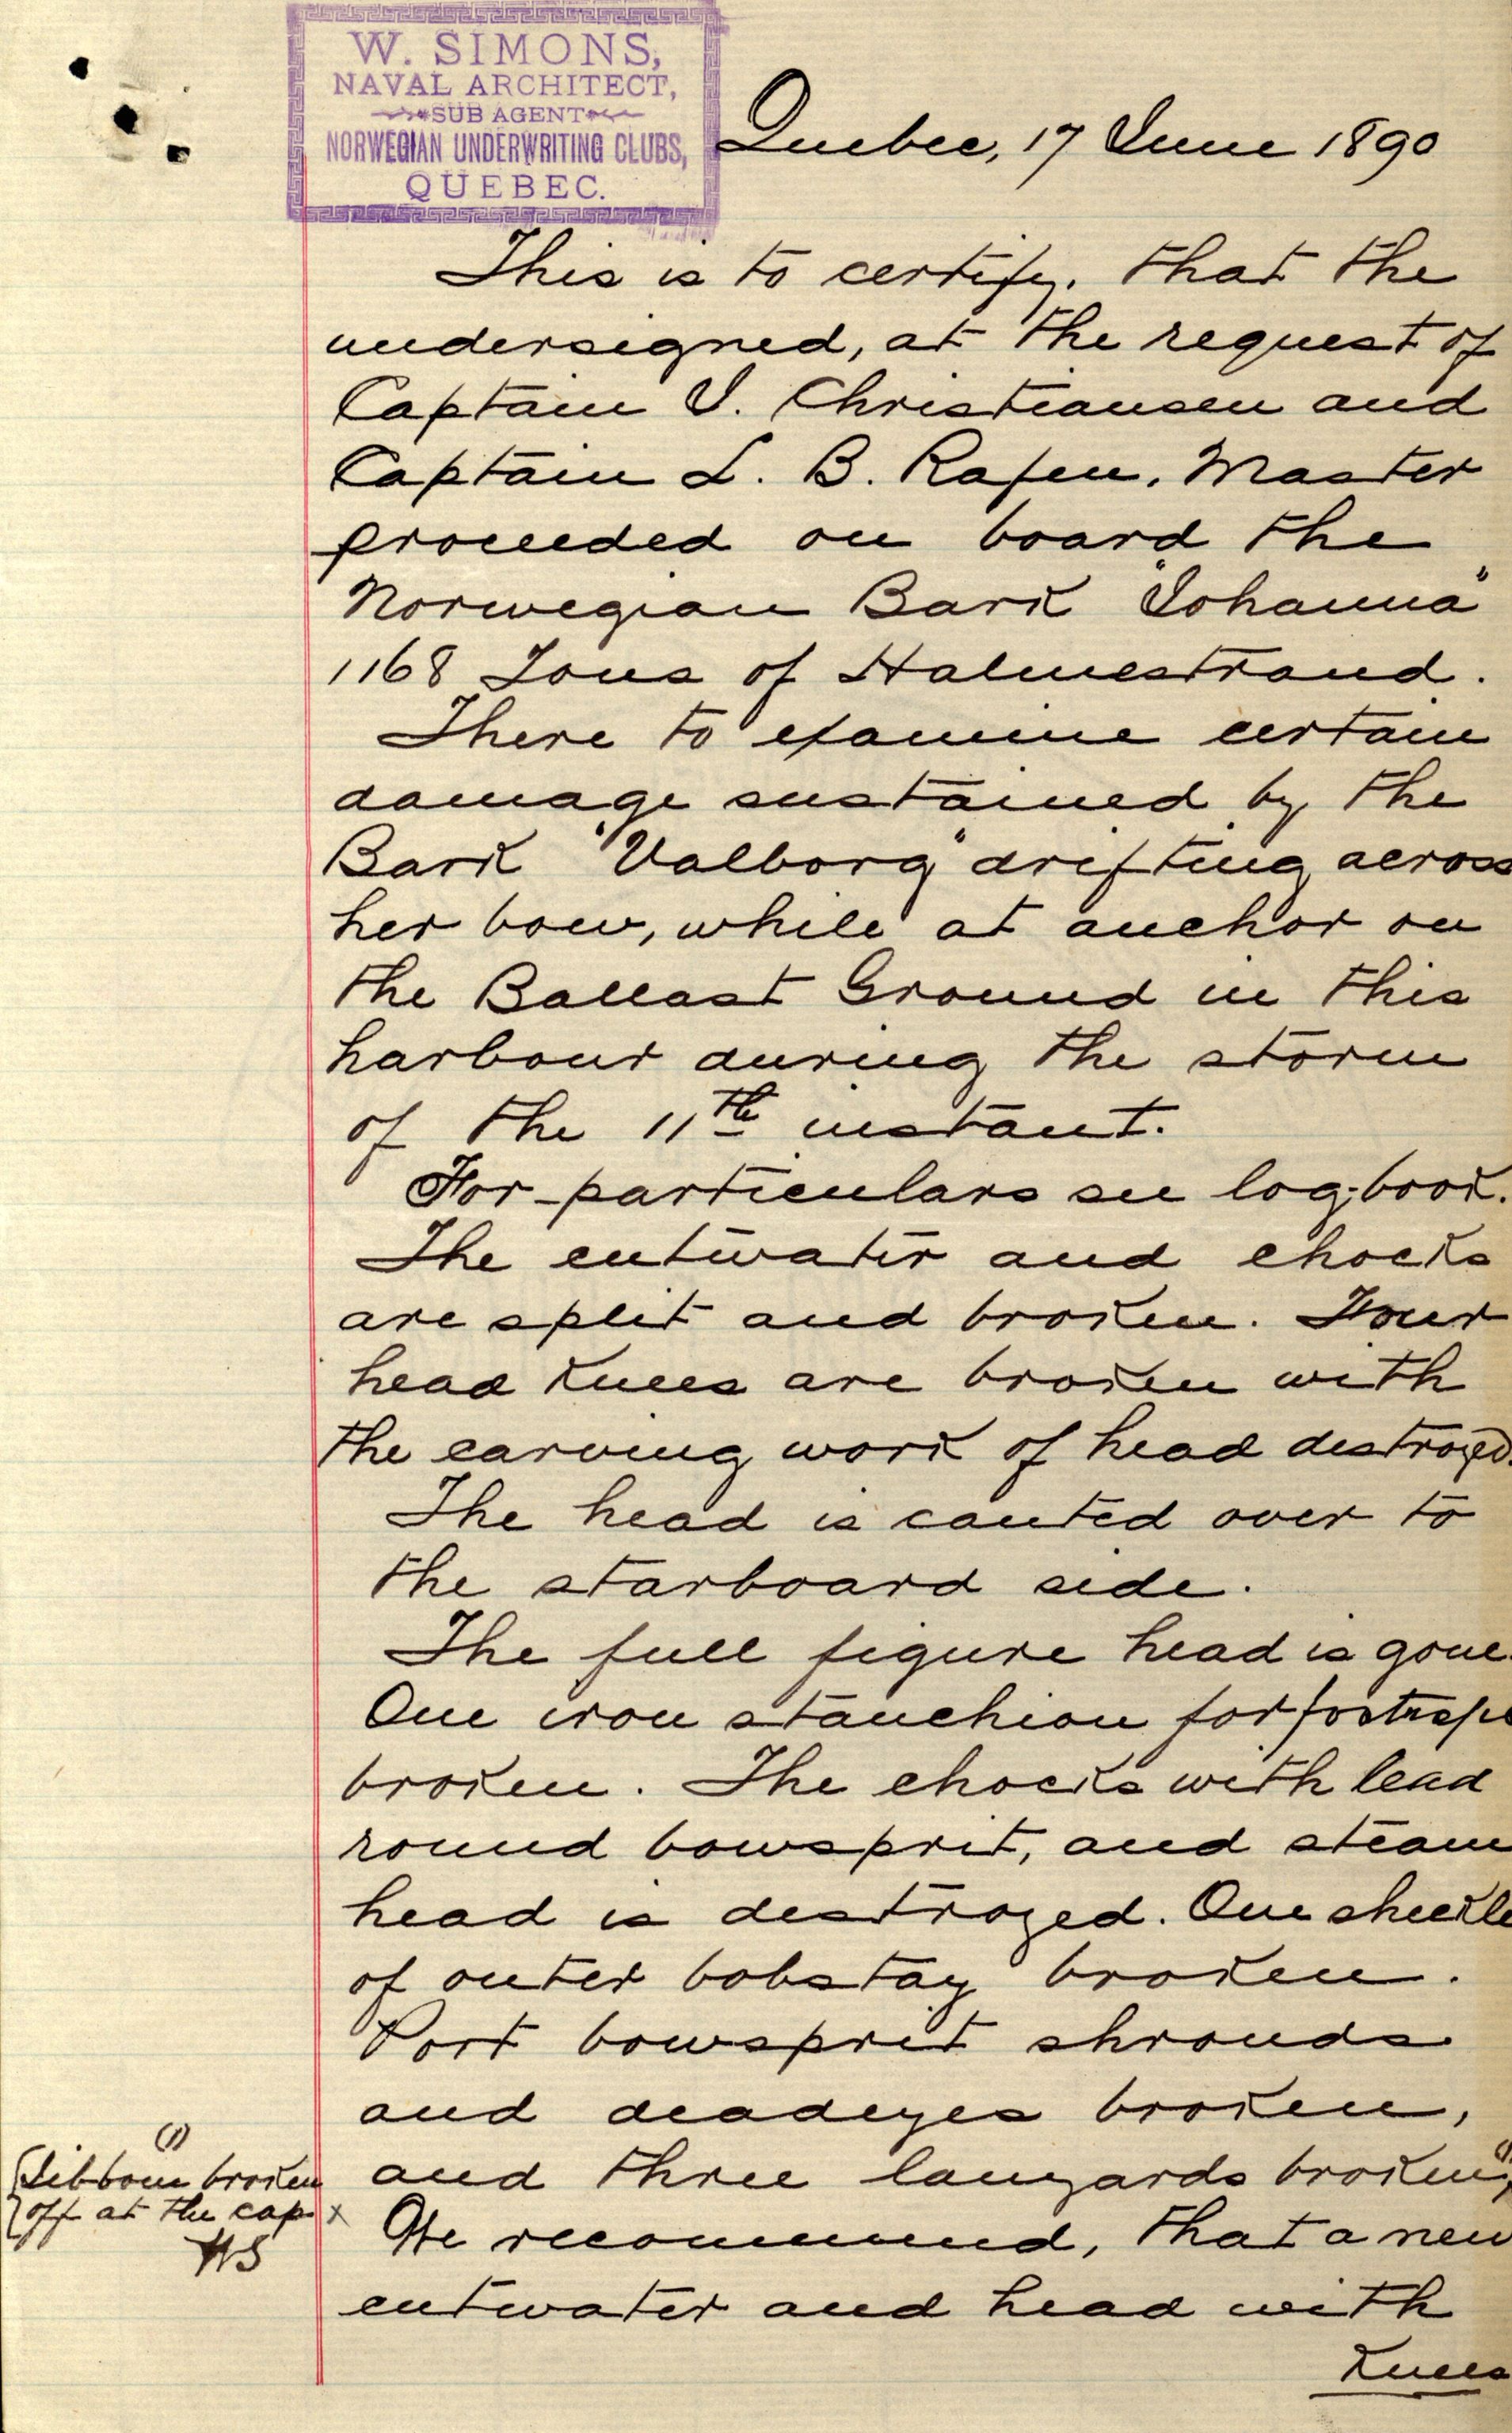 W. SIMONS,
NAVAL ARCHITECT,
SUB AGENT
NORWEGIAN UNDERWRITING CLUBS,
QUEBEC.
Quebec, 17 June 1890
This is to certify, that the
undersigned, at the request of
Captain J. Christiansen and
Captain L. B. Rafen, Master
proceeded on board the
Norwegian Bark "Johanna"
1168 Tons of Holmestrand.
There to examine certain
damage sustained by the
Bark "Valborg" drifting across
her bow, while at anchor on
the Ballast Ground in this
harbour during the storm
of the 11th instant.
For particulars see log-book.
The cutwater and chocks
are split and broken. Four
head knees are broken with
the carving work of head destroyed.
The head is canted over to
the starboard side.
The full figure head is gone.
One iron stanchion for footrope
broken. The chocks with lead
round bowsprit, and steam
head is destroyed. One sheckle
of outer bobstay broken.
Port bowsprit shrouds
and deadeyes broken,
and three lanyards broken, (1)
(1)
Jibboom broken
off at the cap x
WS
We recommend, that a new
cutwater and head with
knees